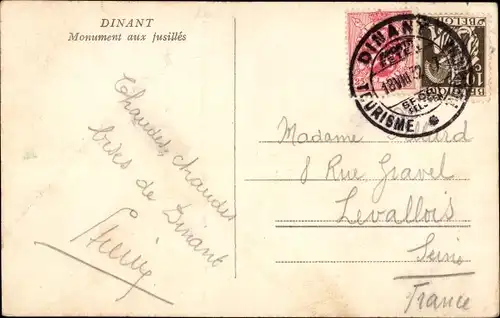 DINANT
Monument aux fusillés
Chaudes, chaudes
bises de Dinant
DINANT
TOURISME
BELGIË
10
Madame
8 Rue Gravel
Levallois
Seine
France